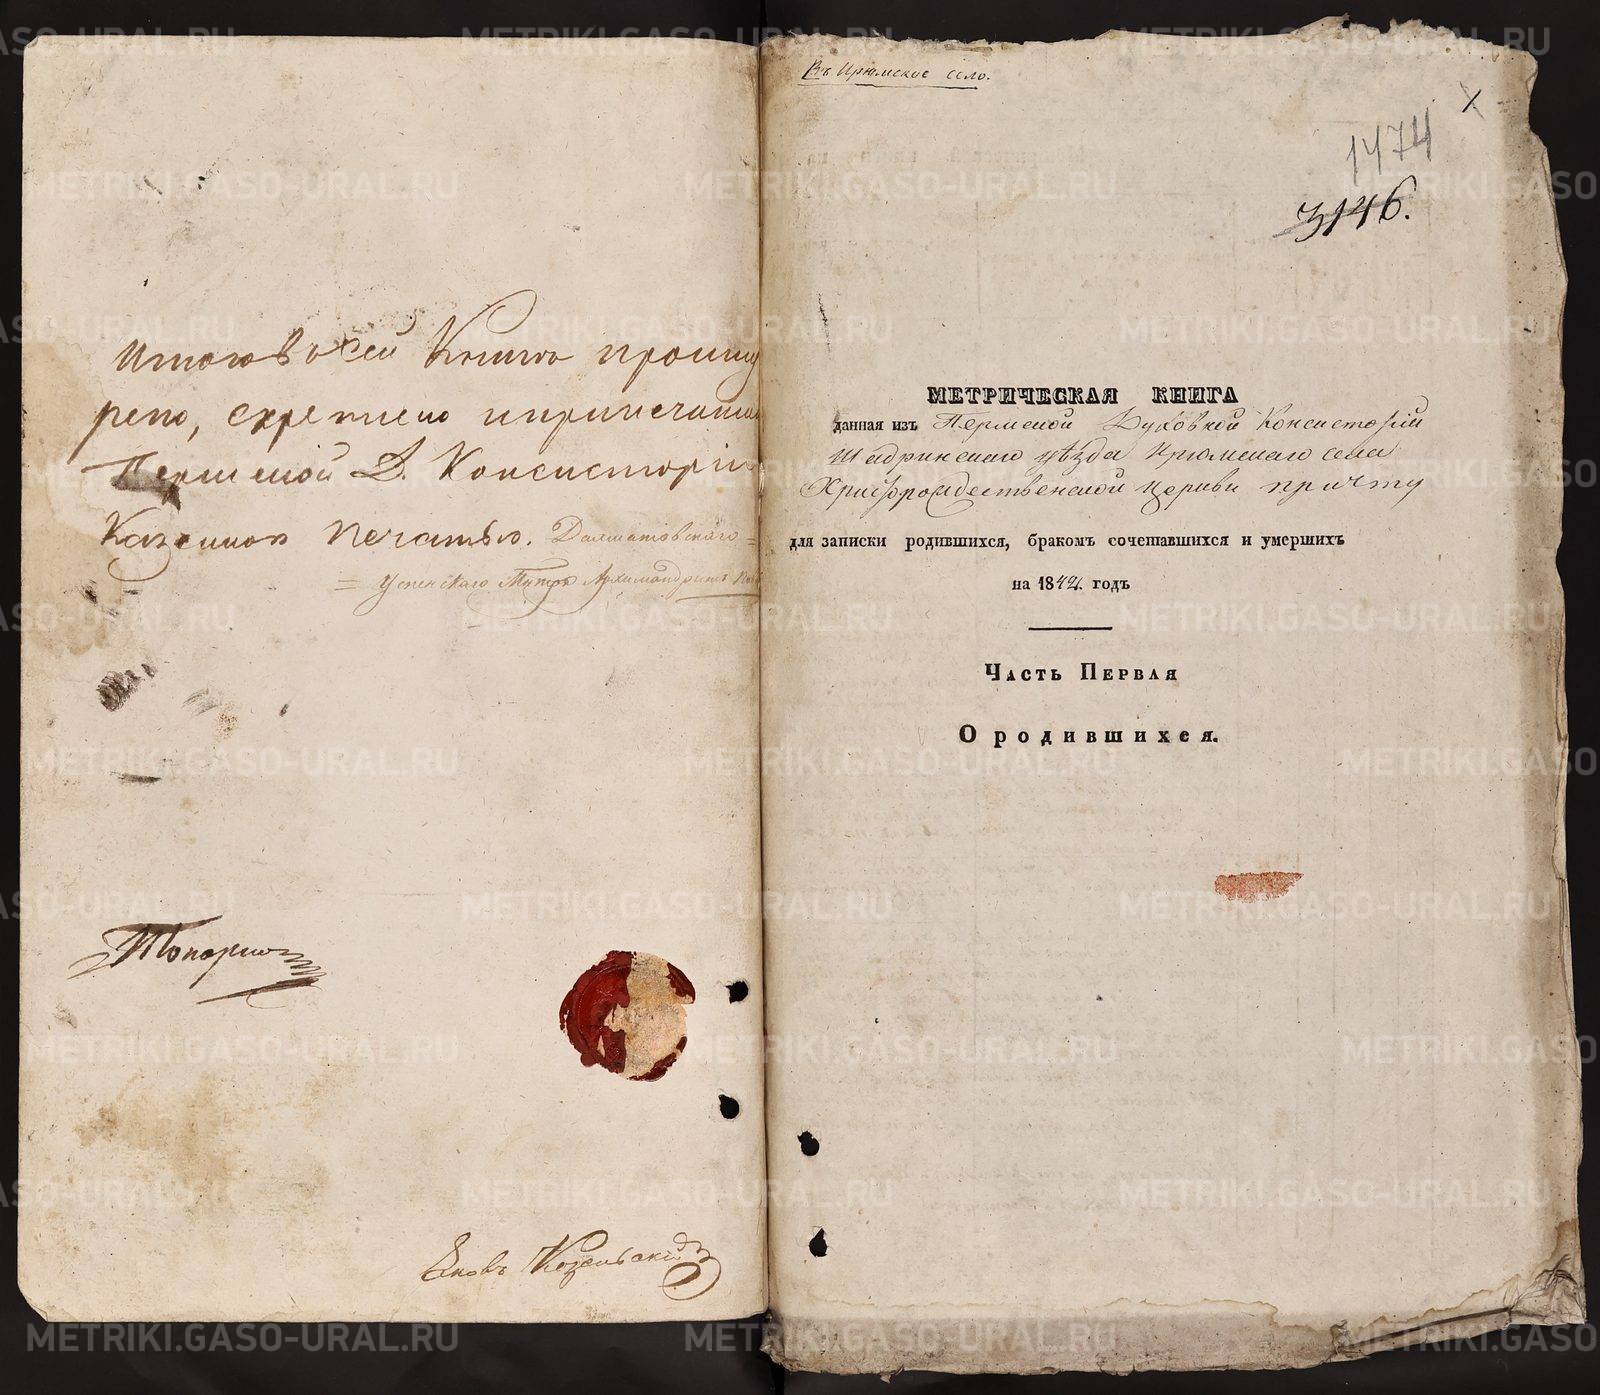 Итого въ сей Книгѣ прошну
рено, скреплено и припечатан
Пермской Д. Консисторіи
Казенною печатью. Далматовскаго =
= Успенскаго Мнтря Архимандритъ
Топорно
Яковъ Козельскій
Въ Ирюмское село.
1474
3146.
МЕТРИЧЕСКАЯ КНИГА
данная изъ Пермской Духовной Консисторіи
Шадринскаго уѣзда Ирюмскаго села
Христорождественской церкви причту
для записки родившихся, бракомъ сочетавшихся и умершихъ
на 1842. годъ
Часть Первая
О родившихся.
METRIKI.GASO-URAL.RU